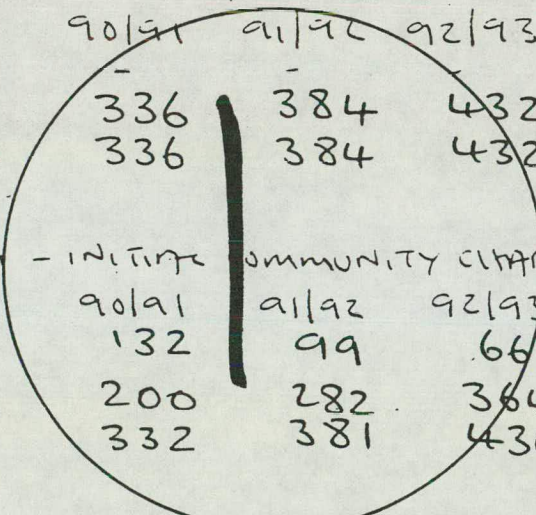 90/91 91/92 92/93
- - -
336 384 432
336 384 432
- INITIAL COMMUNITY CHAR
90/91 91/92 92/93
132 99 66
200 282 364
332 381 430